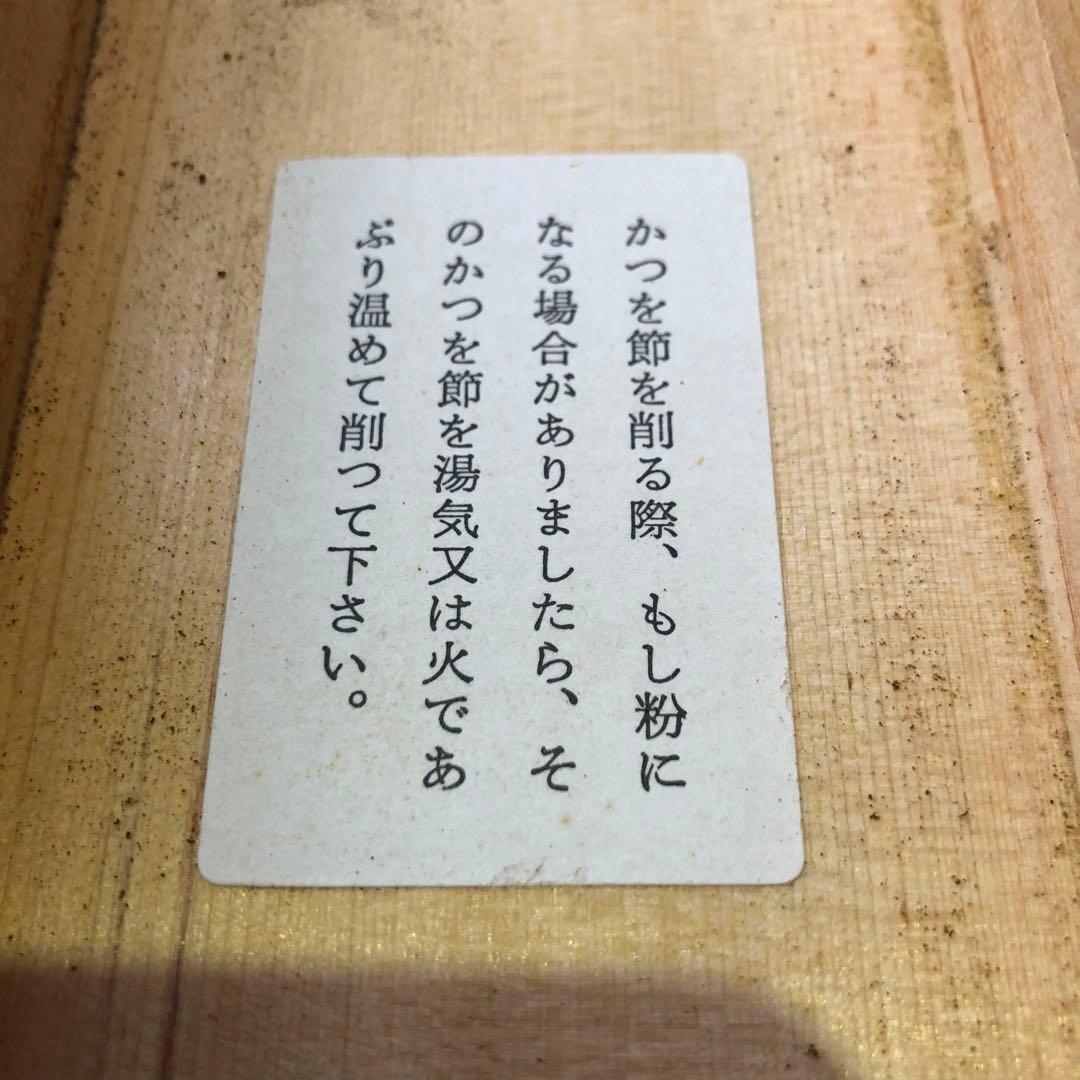 かつを節を削る際、もし粉に
なる場合がありましたら、そ
のかつを節を湯気又は火であ
ぶり温めて削つて下さい。